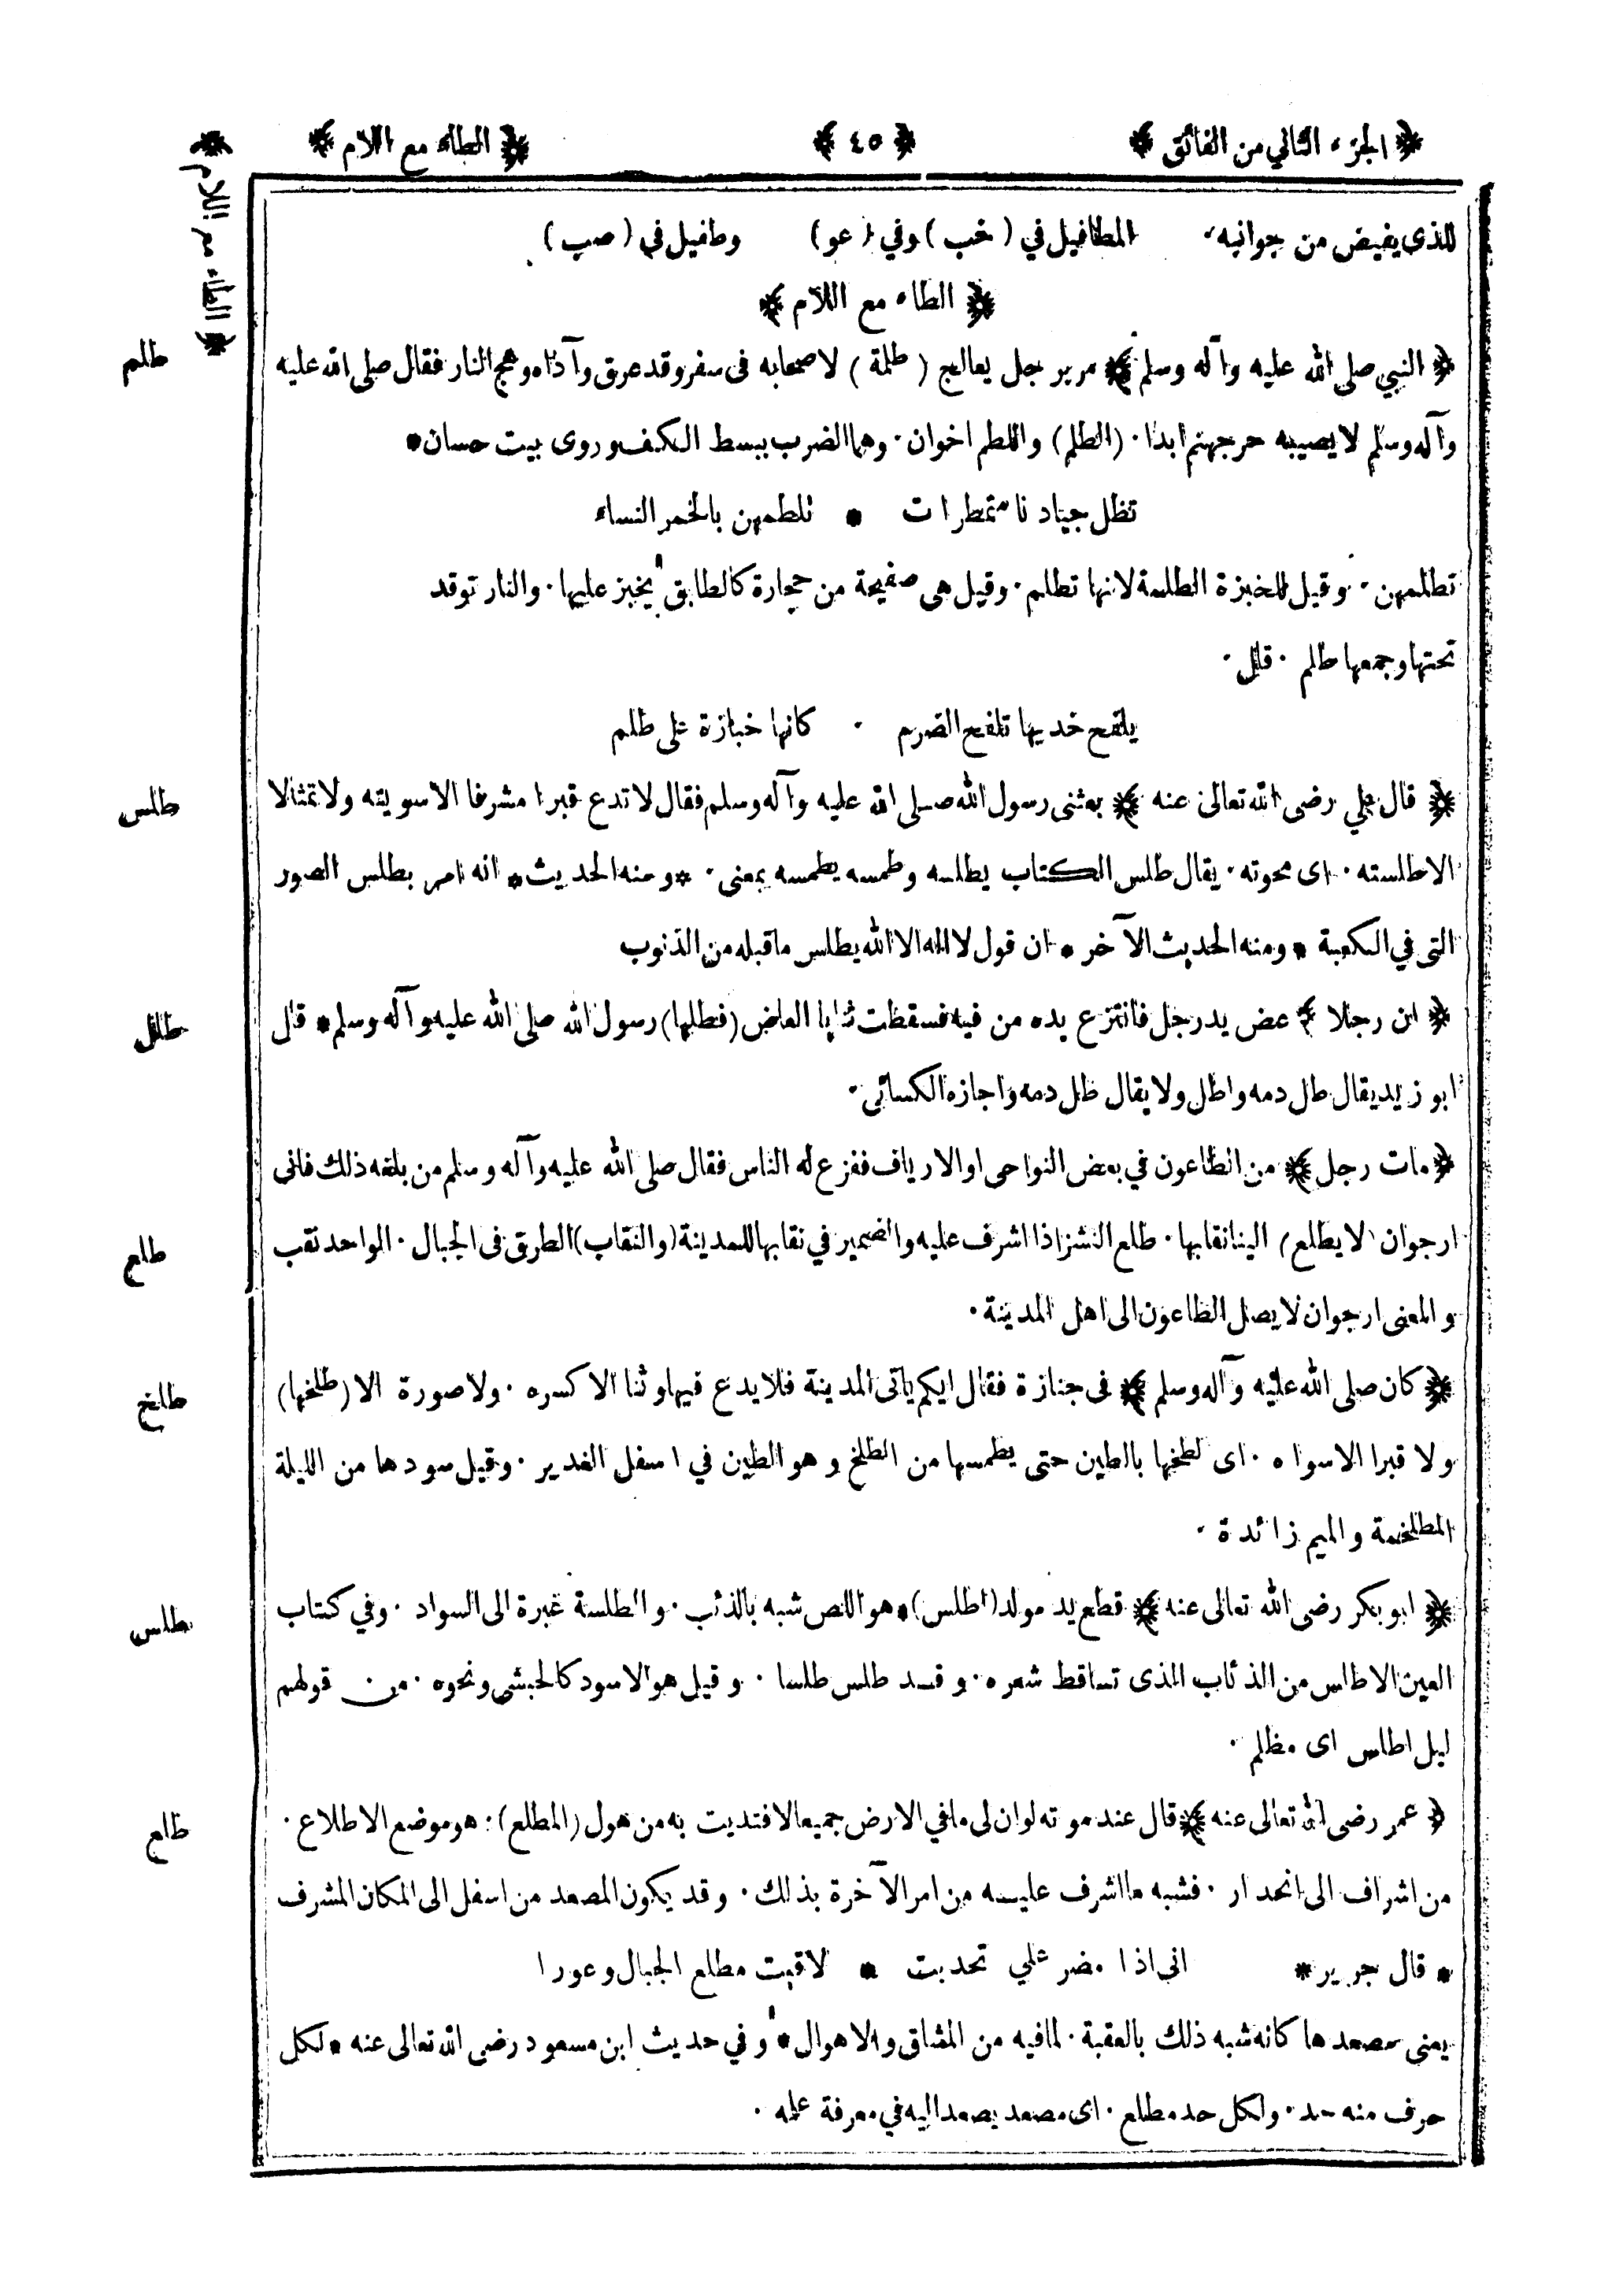 ﴿ الجزء الثاني من الفائق ﴾
﴿ ٤٥ ﴾
﴿ الطاء مع اللام ﴾
﴿ الطاء مع اللام ﴾
للذى يفيض من جوانبه٠ المطافيل في ( خب ) وفي ( عو ) وطفيل فى ( صب )
﴿ الطاء مع اللام ﴾
طلم
﴿ النبي صلى الله عليه وآله وسلم ﴾ مر برجل يعالج ( طلمة ) لاصحابه فى سفر وقد عرق وآذاه وهج النار فقال صلى الله عليه
وآله وسلم لا يصيبه حر جهنم ابدا ٠ (الطلم) واللطم اخوان ٠ وهما الضرب ببسط الكف وروى بيت حسان *
تظل جيادنا متمطرات * تلطمهن بالخمر النساء
تطلمهن ٠ وقيل للخبزة الطلمة لانها تطلم ٠ وقيل هى صفيحة من حجارة كالطابق يخبز عليها ٠ والنار توقد
تحتها وجمعها طلم ٠ قال ٠
يلفح خديها تلفح الضرم ٠ كانها خبازة على طلم
طلس
﴿ قال علي رضى الله تعالى عنه ﴾ بعثنى رسول الله صلى الله عليه وآله وسلم فقال لا تدع قبرا مشرفا الا سويته ولا تمثالا
الا طلسته ٠ اى محوته ٠ يقال طلس الكتاب يطلسه وطمسه يطمسه بمعنى ٠ * ومنه الحديث * انه امر بطلس الصور
التى في الكعبة * ومنه الحديث الآخر * ان قول لا اله الا الله يطلس ما قبله من الذنوب
طلل
﴿ ان رجلا ﴾ عض يد رجل فانتزع يده من فيه فسقطت ثنايا العاض (فطلها) رسول الله صلى الله عليه وآله وسلم * قال
ابو زيد يقال طل دمه واطل ولا يقال طل دمه واجازه الكسائى ٠
﴿ مات رجل ﴾ من الطاعون في بعض النواحى او الارياف ففزع له الناس فقال صلى الله عليه وآله وسلم من بلغه ذلك فانى
طلع
ارجو ان (لا يطلع) الينا نقابها ٠ طلع النشز اذا اشرف عليه والضمير في نقابها للمدينة (والنقاب) الطرق فى الجبال ٠ الواحد نقب
والمعنى ارجو ان لا يصل الطاعون الى اهل المدينة ٠
طلخ
﴿ كان صلى الله عليه وآله وسلم ﴾ فى جنازة فقال ايكم ياتى المدينة فلا يدع فيها وثنا الا كسره ٠ ولا صورة الا (طلخها)
ولا قبرا الا سواه ٠ اى لطخها بالطين حتى يطمسها من الطلخ وهو الطين في اسفل الغدير ٠ وقيل سودها من الليلة
المطلخمة والميم زائدة ٠
طلس
﴿ ابو بكر رضى الله تعالى عنه ﴾ قطع يد مولد (اطلس) * هو اللص شبه بالذئب ٠ والطلسة غبرة الى السواد ٠ وفي كتاب
العين الاطلس من الذئاب الذى تساقط شعره ٠ وقد طلس طلسا ٠ وقيل هو الاسود كالحبشى ونحوه ٠ من قولهم
ليل اطلس اى مظلم ٠
طلع
﴿ عمر رضى الله تعالى عنه ﴾ قال عند موته لو ان لى ما في الارض جميعا لافتديت به من هول (المطلع) : هو موضع الاطلاع ٠
من اشراف الى انحدار ٠ فشبه ما اشرف عليه من امر الآخرة بذلك ٠ وقد يكون المصعد من اسفل الى المكان المشرف
* قال جرير * انى اذا مضر علي تحدبت * لاقيت مطلع الجبال وعورا
يعنى مصعدها كانه شبه ذلك بالعقبة ٠ لما فيه من المشاق والاهوال * وفي حديث ابن مسعود رضى الله تعالى عنه * لكل
حرف منه حد ٠ ولكل حد مطلع ٠ اى مصعد يصعد اليه في معرفة علمه ٠